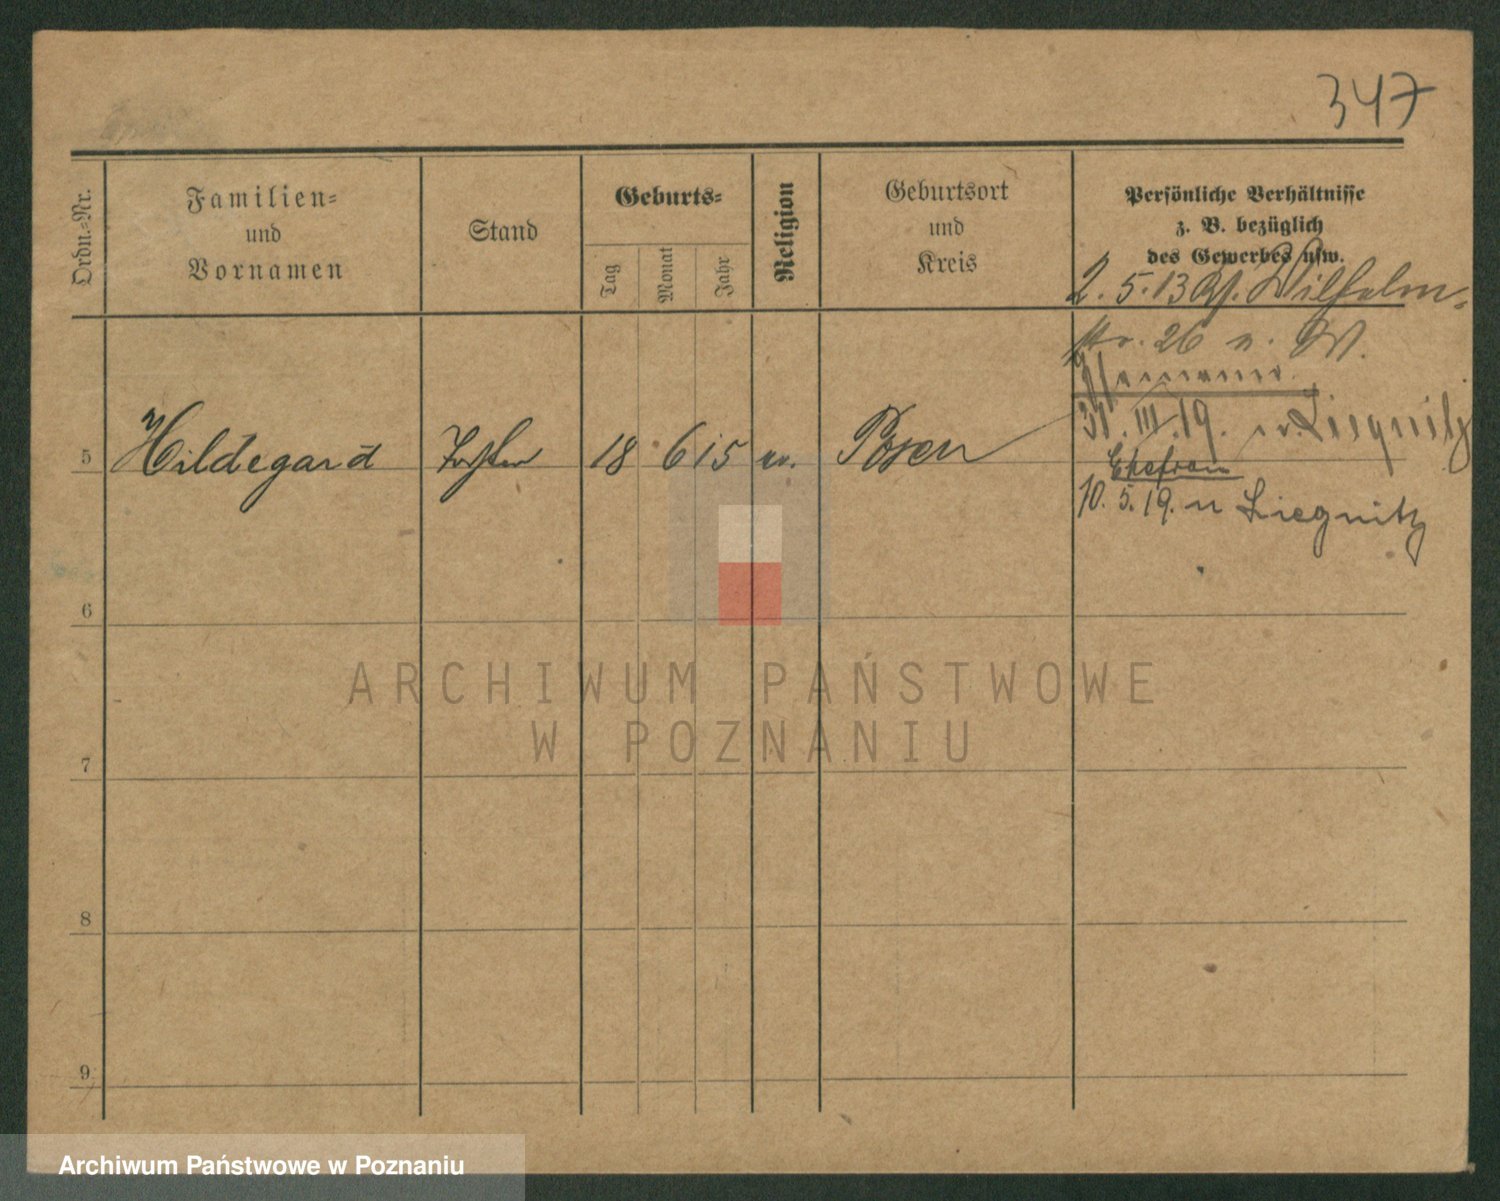 347
Ordn.=Nr.
Familien=
und
Vornamen
Stand
Geburts=
Tag
Monat
Jahr
Religion
Geburtsort
und
Kreis
Persönliche Verhältnisse
z. B. bezüglich
des Gewerbes usw.
2. 5. 13 Wilhelm-
str. 26 n. W.
31. III. 19. Liegnitz
5 Hildegard Tochter 18 6 15 ev. Posen
Ehefrau
10. 5. 19. n Liegnitz
6
7
8
9
ARCHIWUM PAŃSTWOWE
W POZNANIU
Archiwum Państwowe w Poznaniu